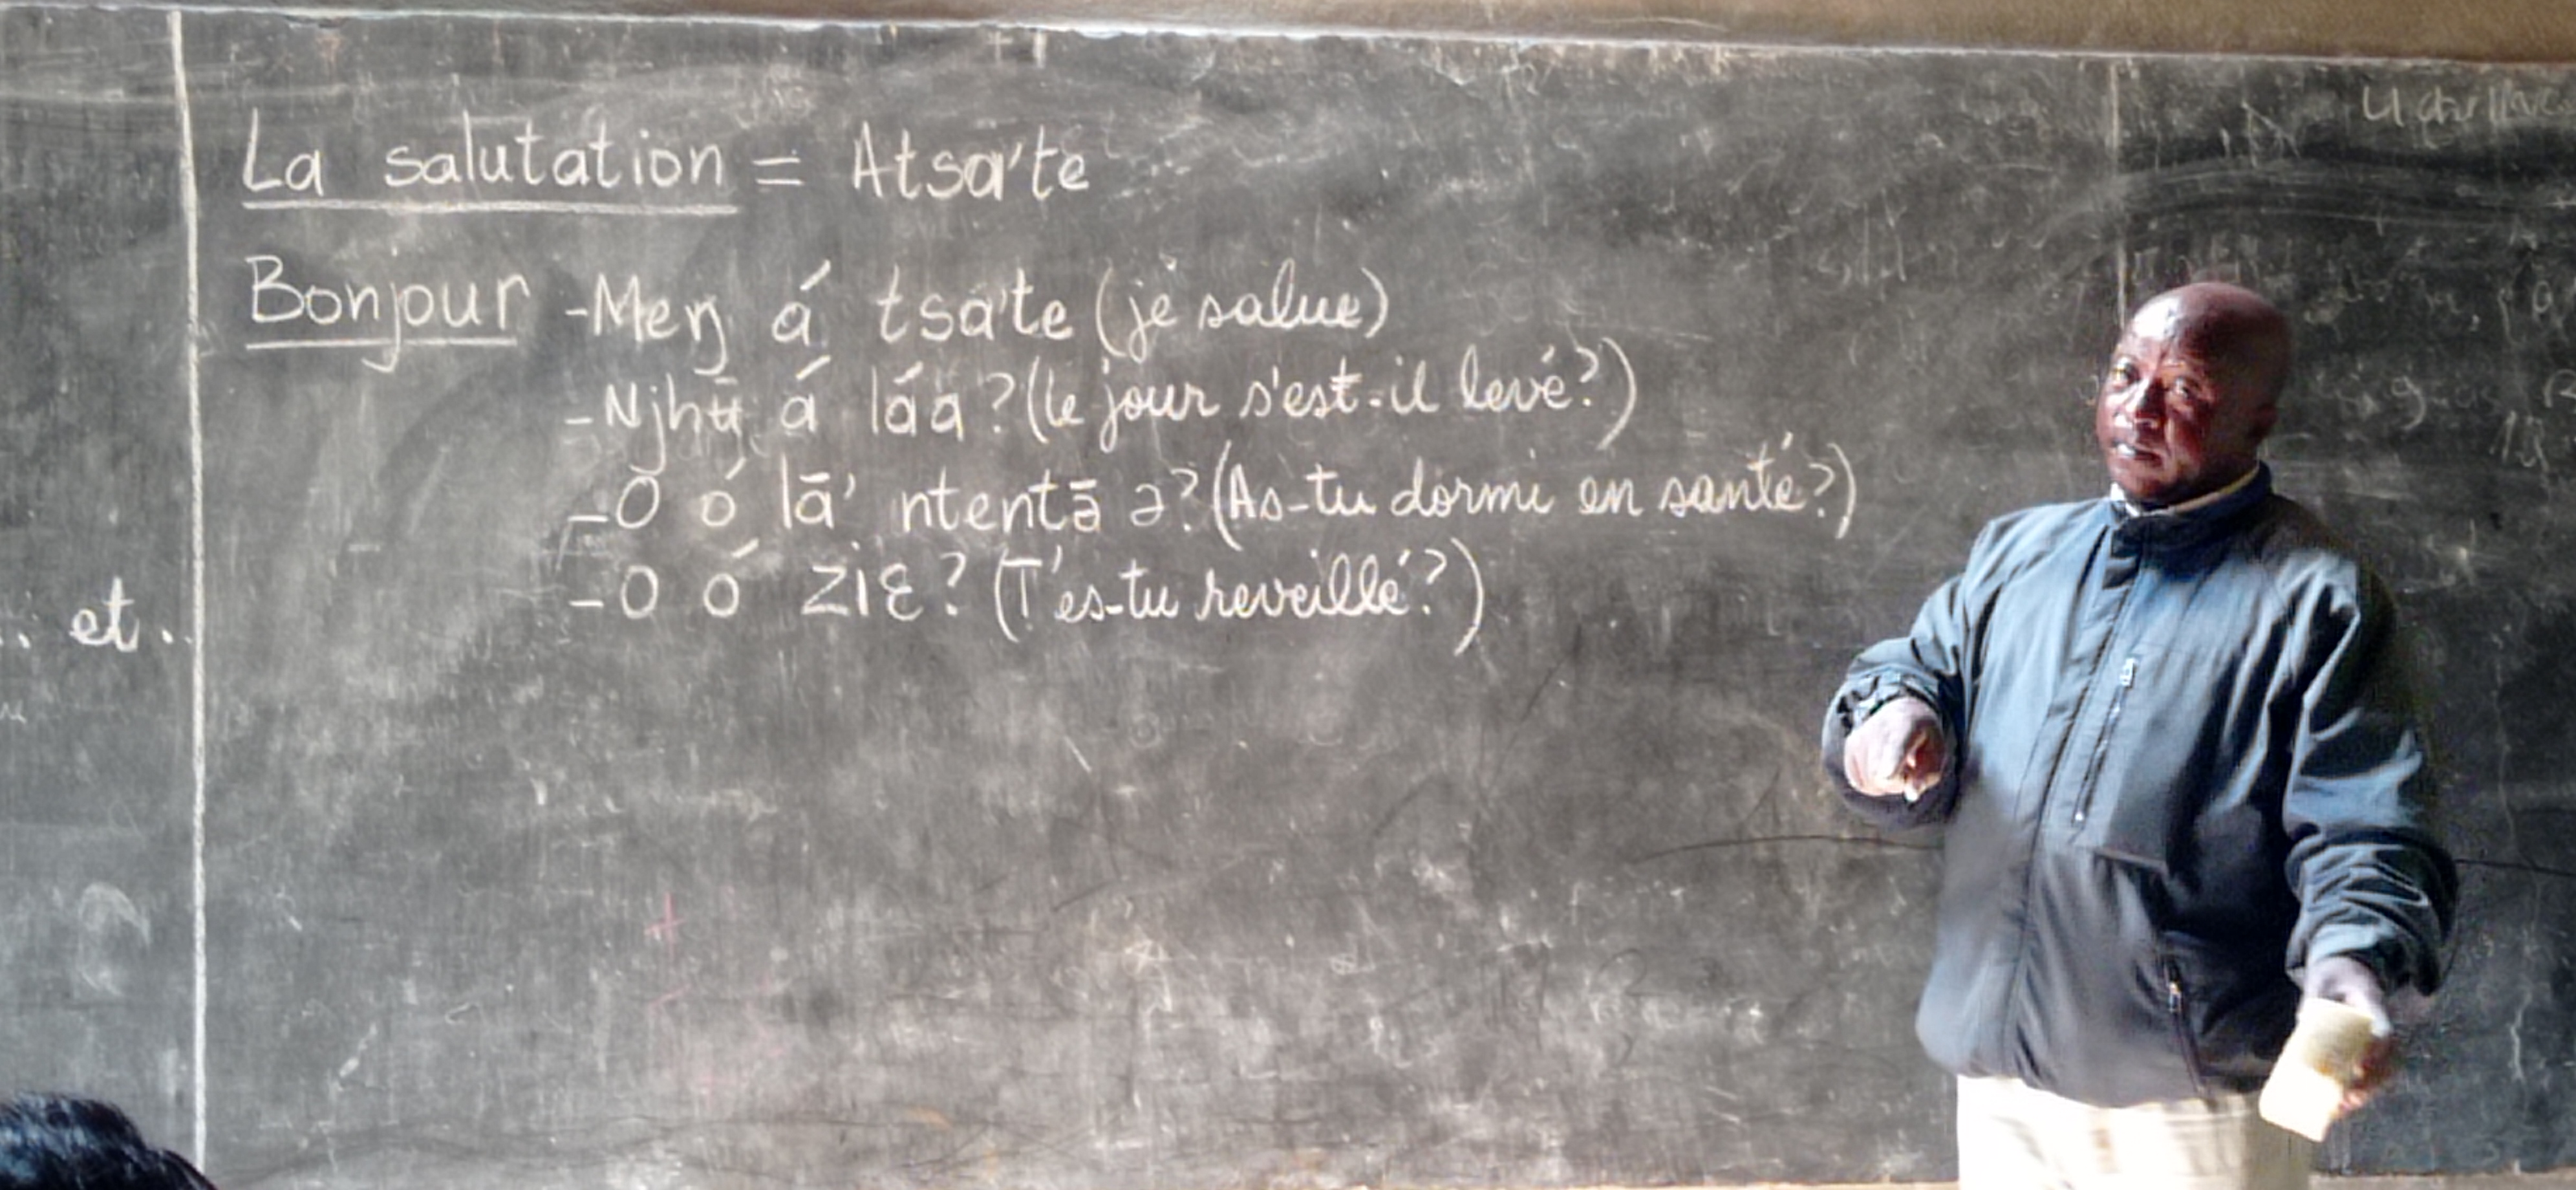 La salutation = Atsa'te
Bonjour -Meŋ á tsa'te (je salue)
-Njhʉ̄ á láa ? (le jour s'est-il levé?)
-O ó lā' ntentā ə? (As-tu dormi en santé?)
-O ó Ziɛ? (T'es-tu reveillé?)
.. et .